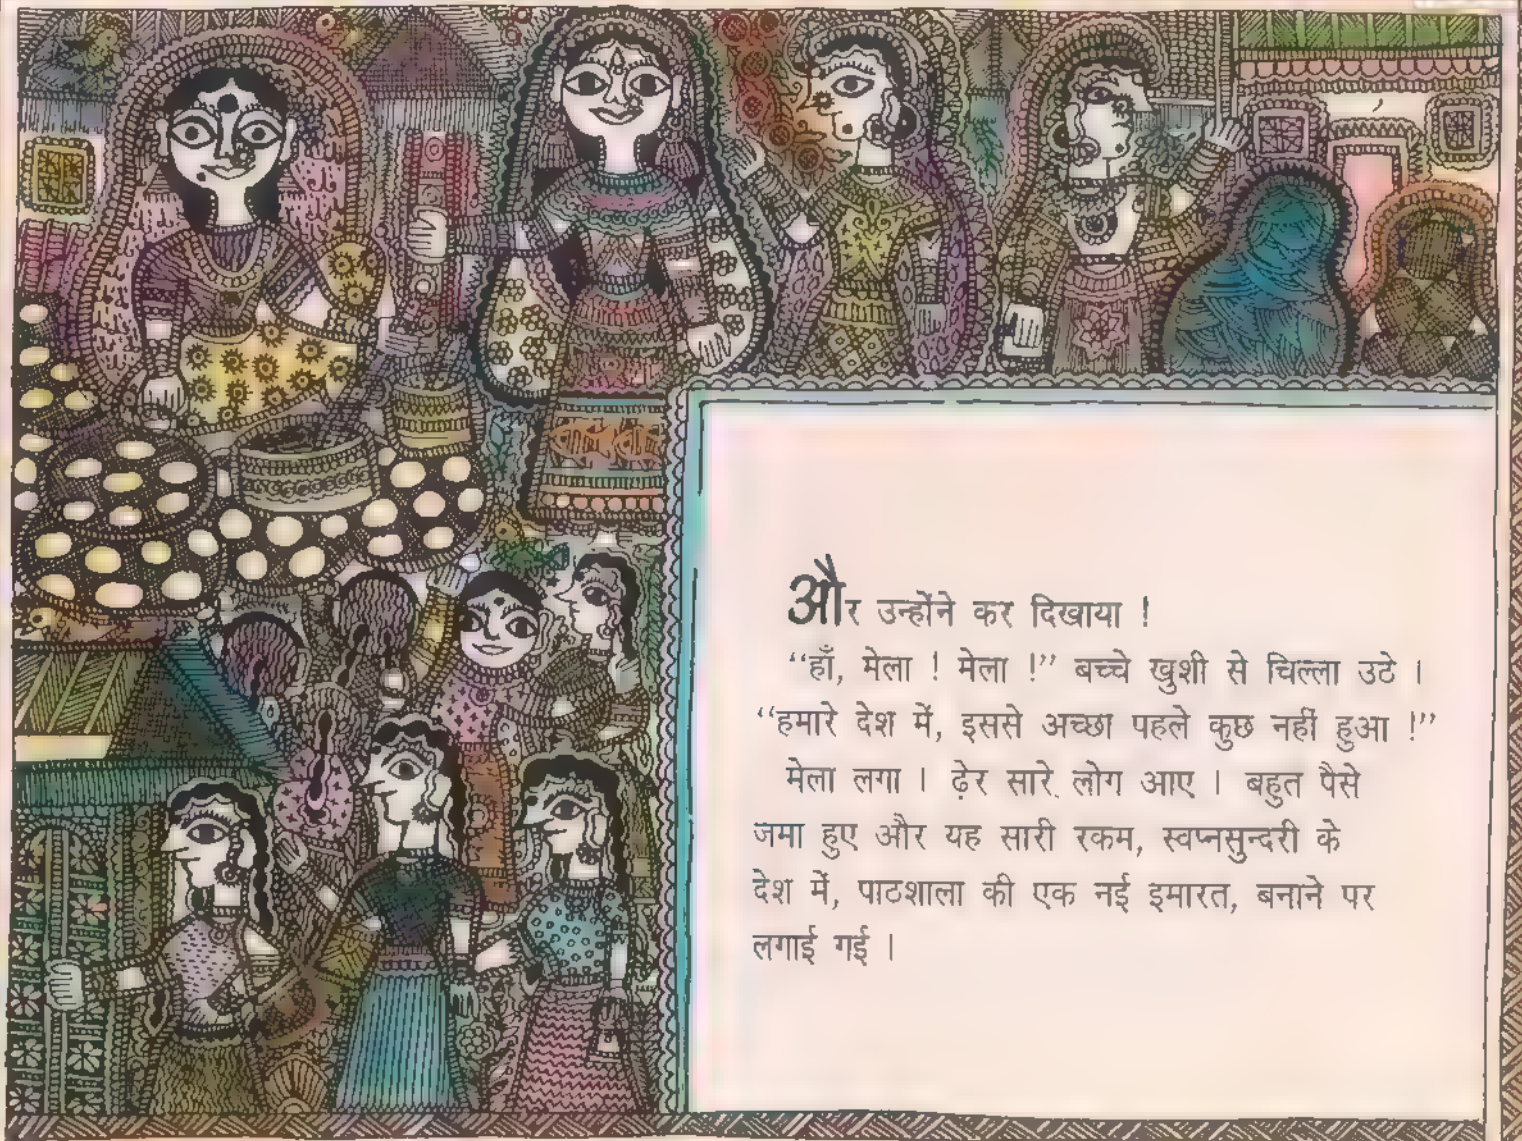 और उन्होंने कर दिखाया !
“हाँ, मेला ! मेला !” बच्चे खुशी से चिल्ला उठे ।
“हमारे देश में, इससे अच्छा पहले कुछ नहीं हुआ !”
मेला लगा । ढ़ेर सारे लोग आए । बहुत पैसे
जमा हुए और यह सारी रकम, स्वप्नसुन्दरी के
देश में, पाठशाला की एक नई इमारत, बनाने पर
लगाई गई ।